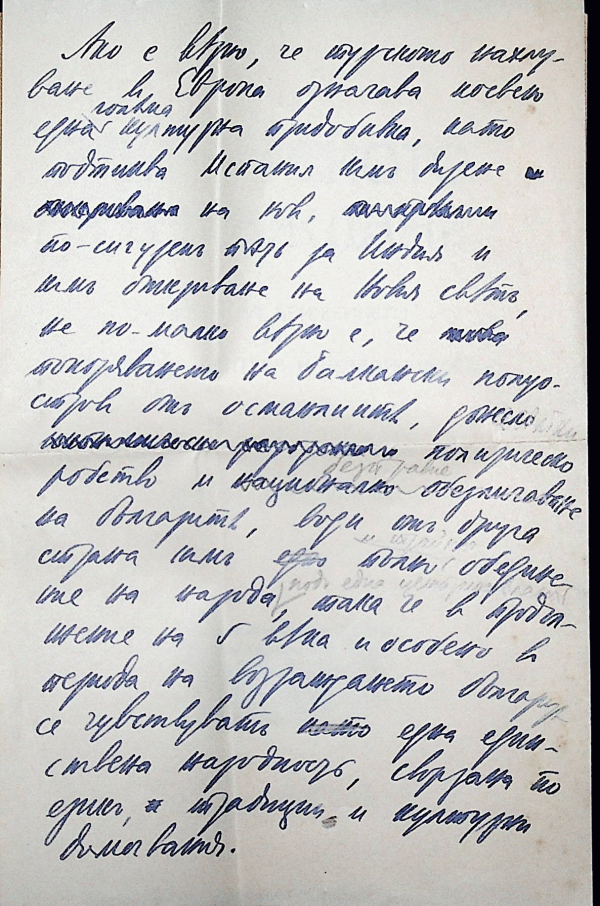 Ако е вѣрно, че турското нахлу-
ване в Европа означава косвено
голѣма
една културна придобивка, като
подтиква Испания към дирене
на нов,
по-сигурен път за Индия и
към откриване на Новия свѣтъ,
не по-малко вѣрно е, че
покоряването на Балкански полуо-
стров отъ османлиитѣ, донесло
политическо
робство и национално обезличаване
на българитѣ, води отъ друга
страна към едно пълно обедине-
ние на народа, така че в продъл-
жение на 5 вѣка и особено в
периода на възраждането българи
се чувствуватъ като една един-
ствена народность, свързана по
езикъ, традиции и културни
домогвания.